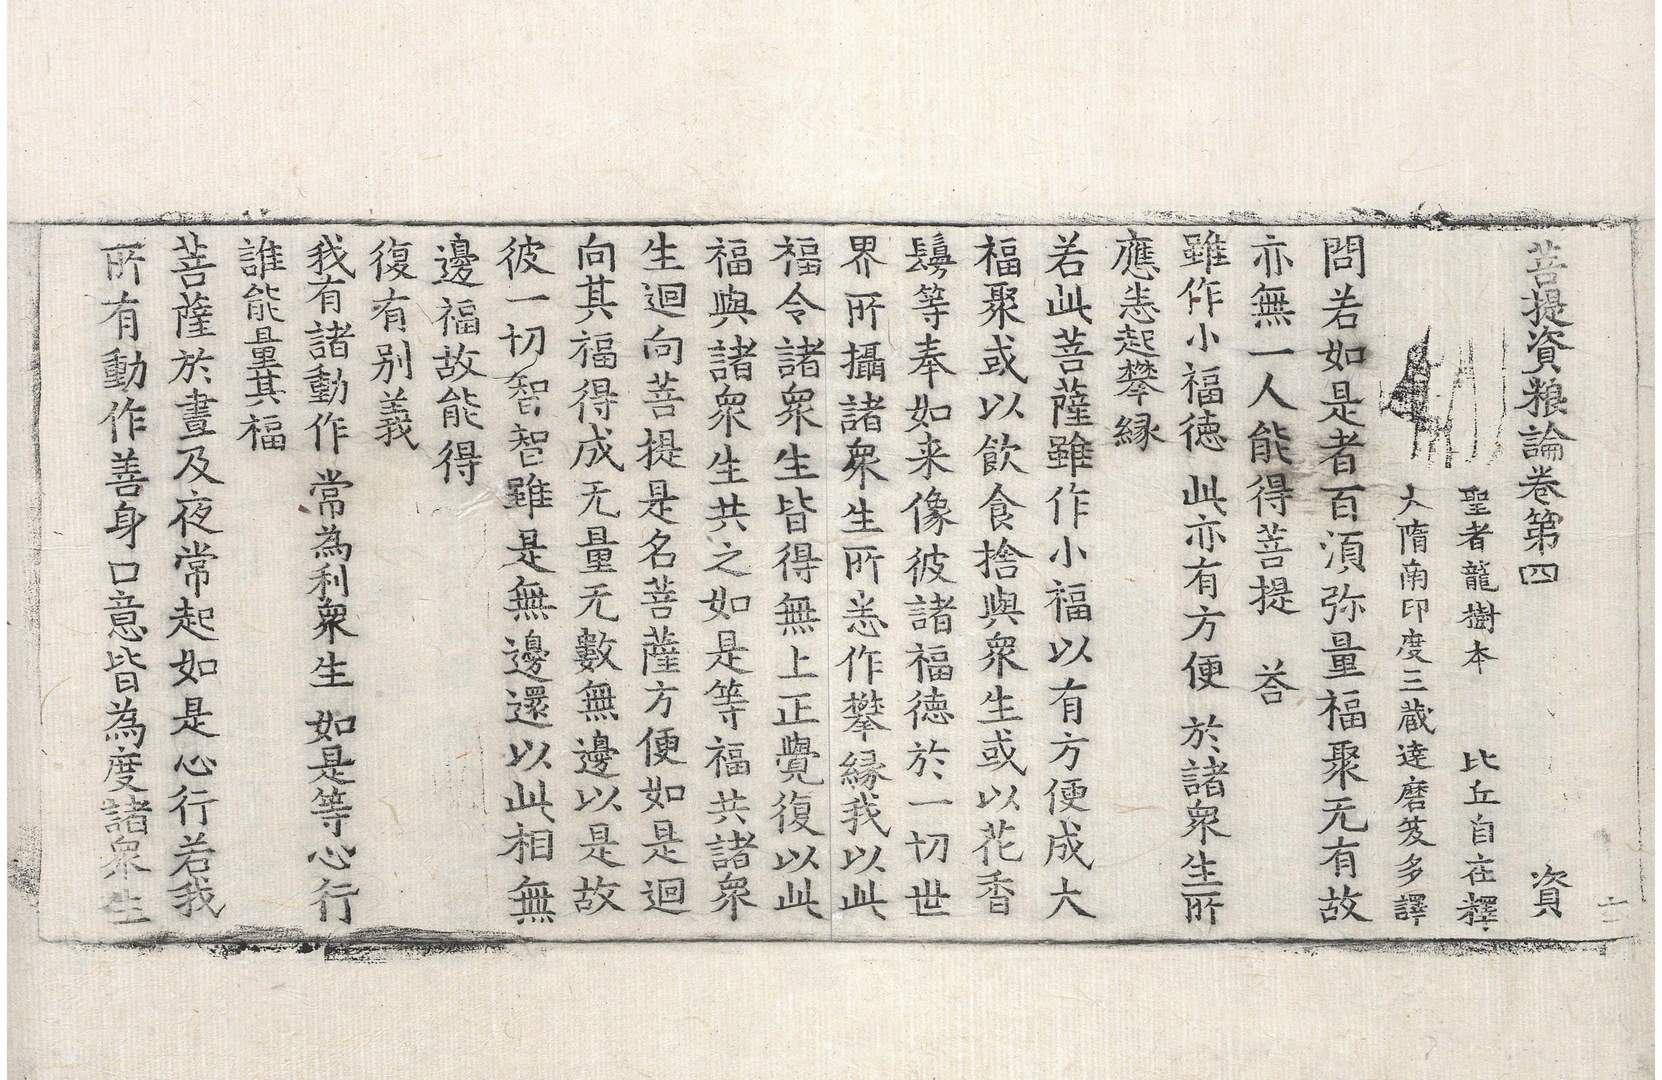 菩提資粮論卷第四 資
聖者龍樹本 比丘自在釋
大隋南印度三藏達磨笈多譯
問若如是者百湏弥量福聚无有故
亦無一人能得菩提 荅
雖作小福徳 此亦有方便 於諸衆生所
應恚起攀縁
若此菩薩雖作小福以有方便成大
福聚或以飲食捨與衆生或以花香
鬘等奉如来像彼諸福徳於一切世
界所攝諸衆生所恚作攀縁我以此
福令諸衆生皆得無上正覺復以此
福與諸衆生共之如是等福共諸衆
生迴向菩提是名菩薩方便如是迴
向其福得成无量无數無邊以是故
彼一切智智雖是無邊還以此相無
邊福故能得
復有别義
我有諸動作 常為利衆生 如是等心行
誰能量其福
菩薩於晝及夜常起如是心行若我
所有動作善身口意皆為度諸衆生